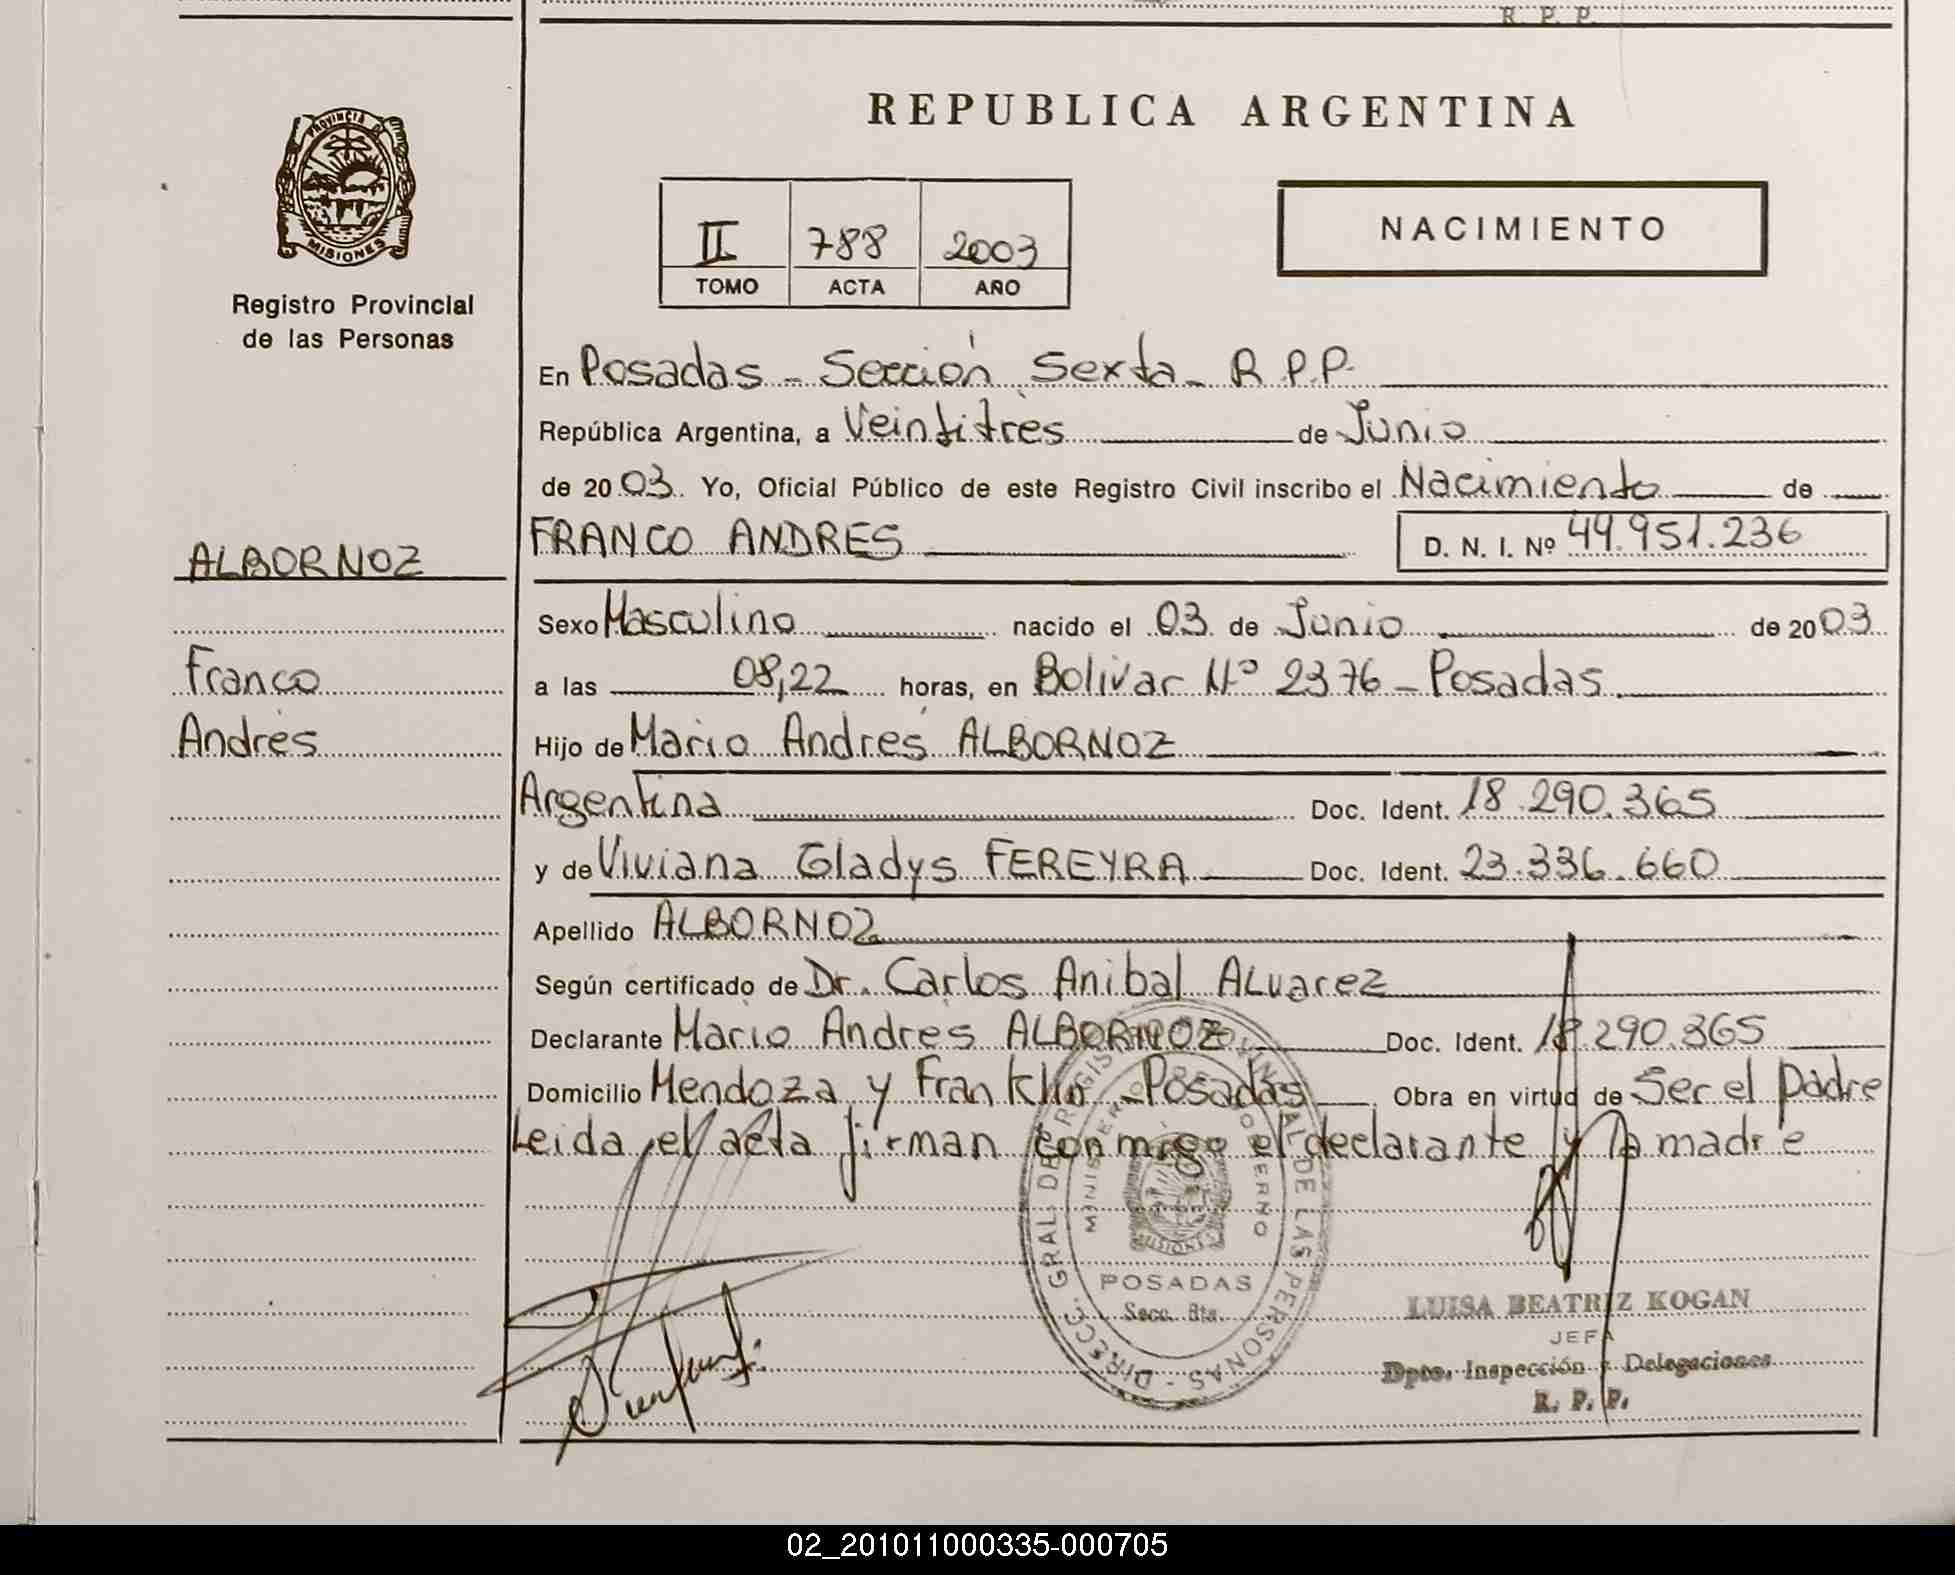 R. P. P.
PROVINCIA D
MISIONES
Registro Provincial
de las Personas
ALBORNOZ
Franco
Andrés
REPUBLICA ARGENTINA
II 788 2003
TOMO ACTA AÑO
NACIMIENTO
En Posadas - Sección Sexta - R.P.P.
República Argentina, a Veintitrés de Junio
de 2003. Yo, Oficial Público de este Registro Civil inscribo el Nacimiento de
FRANCO ANDRES D. N. I. Nº 44.951.236
Sexo Masculino nacido el 03 de Junio de 2003
a las 08,22 horas, en Bolivar Nº 2376 - Posadas
Hijo de Mario Andrés ALBORNOZ
Argentina Doc. Ident. 18.290.365
y de Viviana Gladys FEREYRA Doc. Ident. 23.336.660
Apellido ALBORNOZ
Según certificado de Dr. Carlos Anibal ALvarez
Declarante Mario Andrés ALBORNOZ Doc. Ident. 18.290.365
Domicilio Mendoza y Franklin - Posadas Obra en virtud de Ser el padre
Leida el acta firman conmigo el declarante y la madre
DIRECC. GRAL. DE REGISTRO PROVINCIAL DE LAS PERSONAS
MINISTERIO DE GOBIERNO
MISIONES
POSADAS
Secc. 6ta.
LUISA BEATRIZ KOGAN
JEFA
Dpto. Inspección y Delegaciones
R. P. P.
02_201011000335-000705